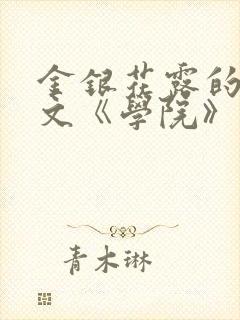 金银花露的
文《學院》
青木琳